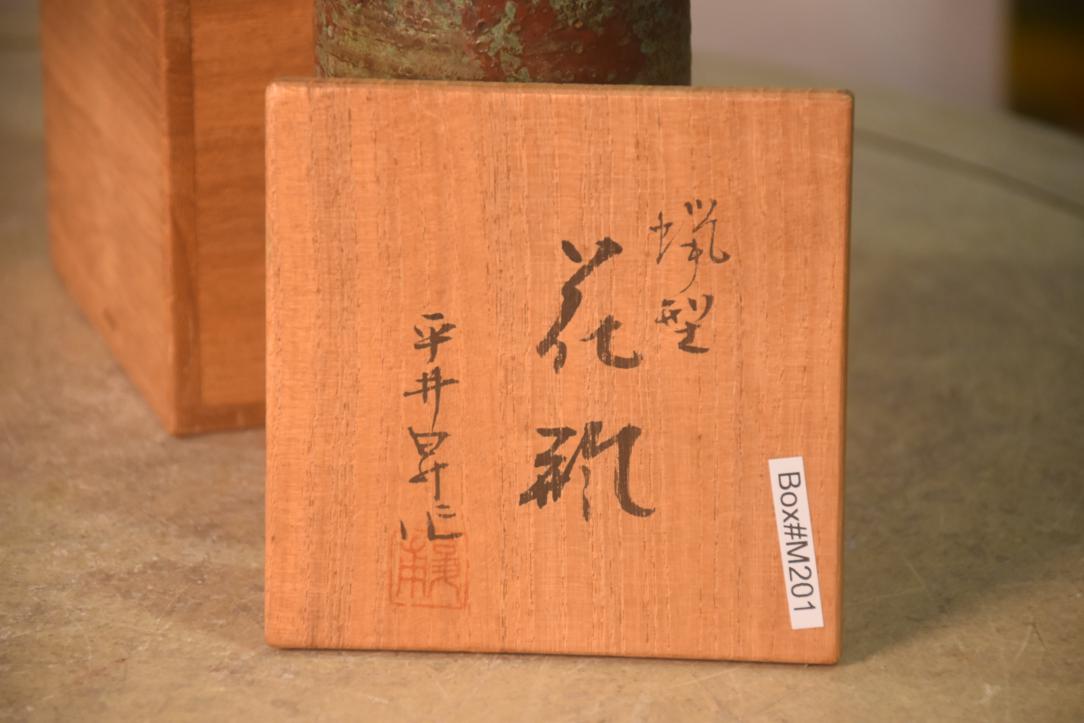 蝋型
花瓶
平井昇作
Box#M201